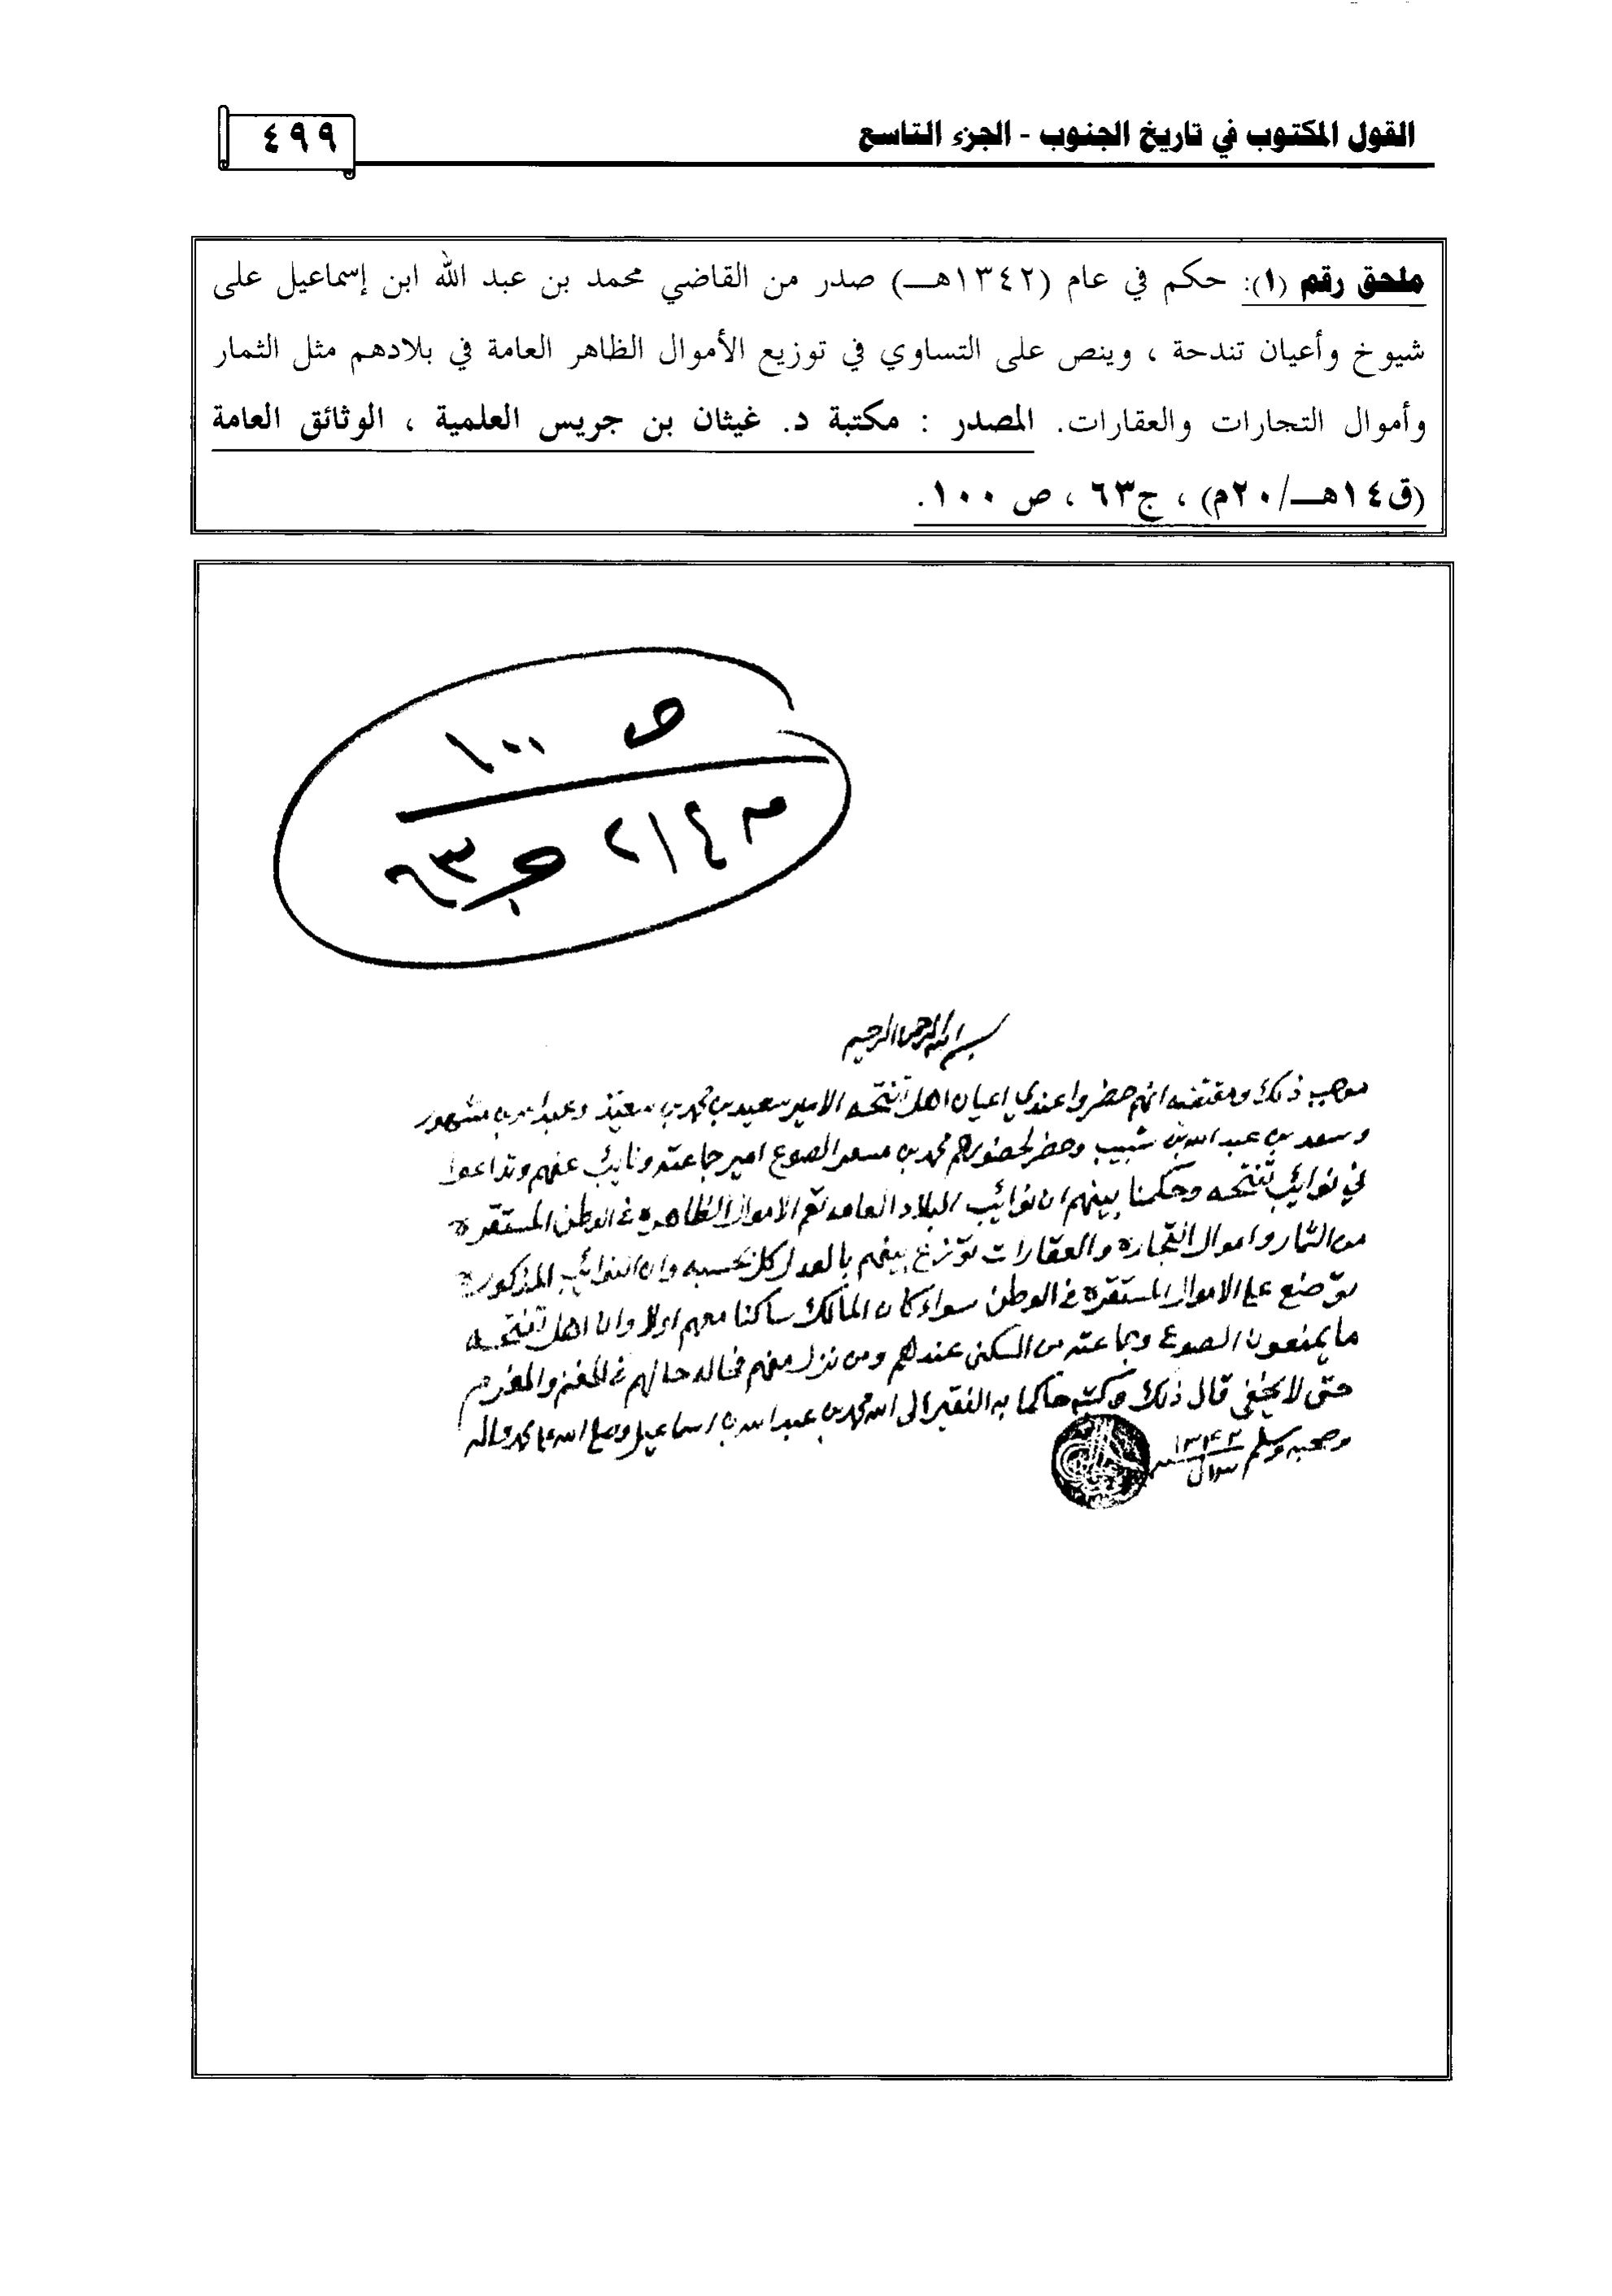 القول المكتوب في تاريخ الجنوب - الجزء التاسع
٤٩٩
ملحق رقم (١): حكم في عام (١٣٤٢هـ) صدر من القاضي محمد بن عبد الله ابن إسماعيل على
شيوخ وأعيان تندحة ، وينص على التساوي في توزيع الأموال الظاهر العامة في بلادهم مثل الثمار
وأموال التجارات والعقارات. المصدر : مكتبة د. غيثان بن جريس العلمية ، الوثائق العامة
(ق١٤هـ/٢٠م) ، ج٦٣ ، ص ١٠٠.
ص ١٠٠
ج ٦٣
بسم الله الرحمن الرحيم
موجب ذلك ومقتضه انهم حضروا عندي اعيان اهل تنتحه الامير سعيد بن محمد بن سعيد وعبدالله بن مشهور
وسعد بن عبدالله بن شبيب وحضر لحضورهم محمد بن مسعر الصوع امير جماعته ونايب عنهم وتداعوا
في نوايب تنتحه وحكمنا بينهم ان نوايب البلاد العامه تعم الاموال الظاهره في الوطن المستقره
من الثمار واموال التجاره والعقارات توزع بينهم بالعدل كل بحسبه وان النوايب المذكوره
توضع على الاموال المستقره في الوطن سواء كان المالك ساكنا معهم اولا وان اهل تنتحه
ما يمنعون الصوع وجماعته من السكنى عندهم ومن نزل منهم فحاله حالهم في المغنم والمغرم
حتى لا يخفى قال ذلك وكتبه حاكما به الفقير الى الله محمد بن عبدالله بن اسماعيل وصلى الله على محمد واله
وصحبه وسلم شوال ١٣٤٢